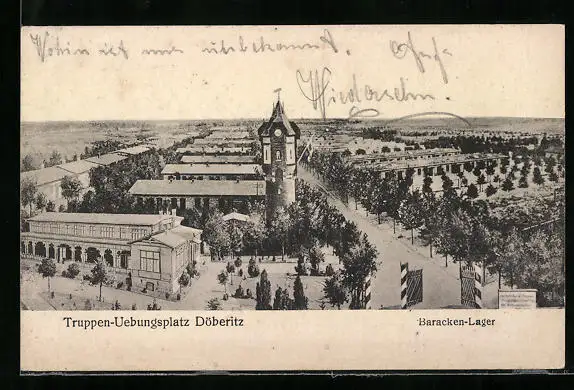 Wohin ist mir unbekannt. Auf
Wiedersehn.
Truppen-Uebungsplatz Döberitz
Baracken-Lager